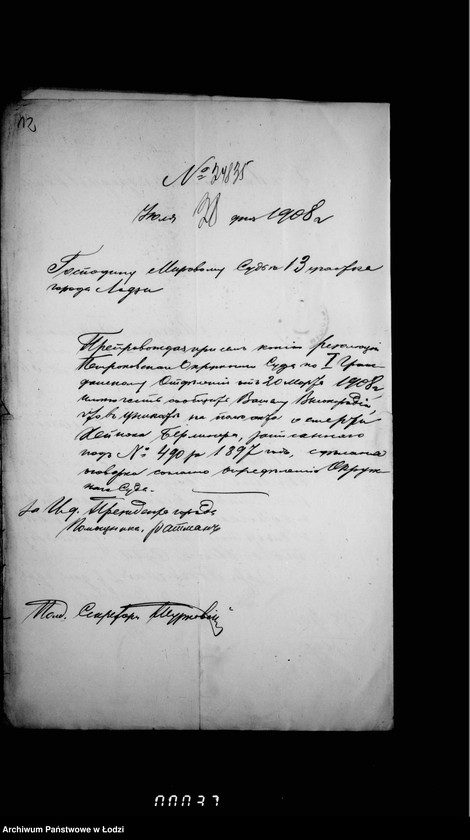 12
№ 24835
Июля 28 дня 1908 г
Господину Мировому Судьѣ 13 участка
города Лодзи
Препровождая при семъ копію резолюціи
Петроковскаго Окружнаго Суда по I Граж-
данскому Отдѣленію отъ 20 Марта 1908 г.
имѣю честь сообщить Вашему Высокородію,
что въ уникатѣ на актѣ о смерти
Берлинера, записаннаго
подъ № 490 за 1897 годъ, сдѣлана
оговорка согласно опредѣленію Окруж-
наго Суда.
За И.д. Президента города
Помощникъ
Пом. Секретаря
00037
Archiwum Państwowe w Łodzi